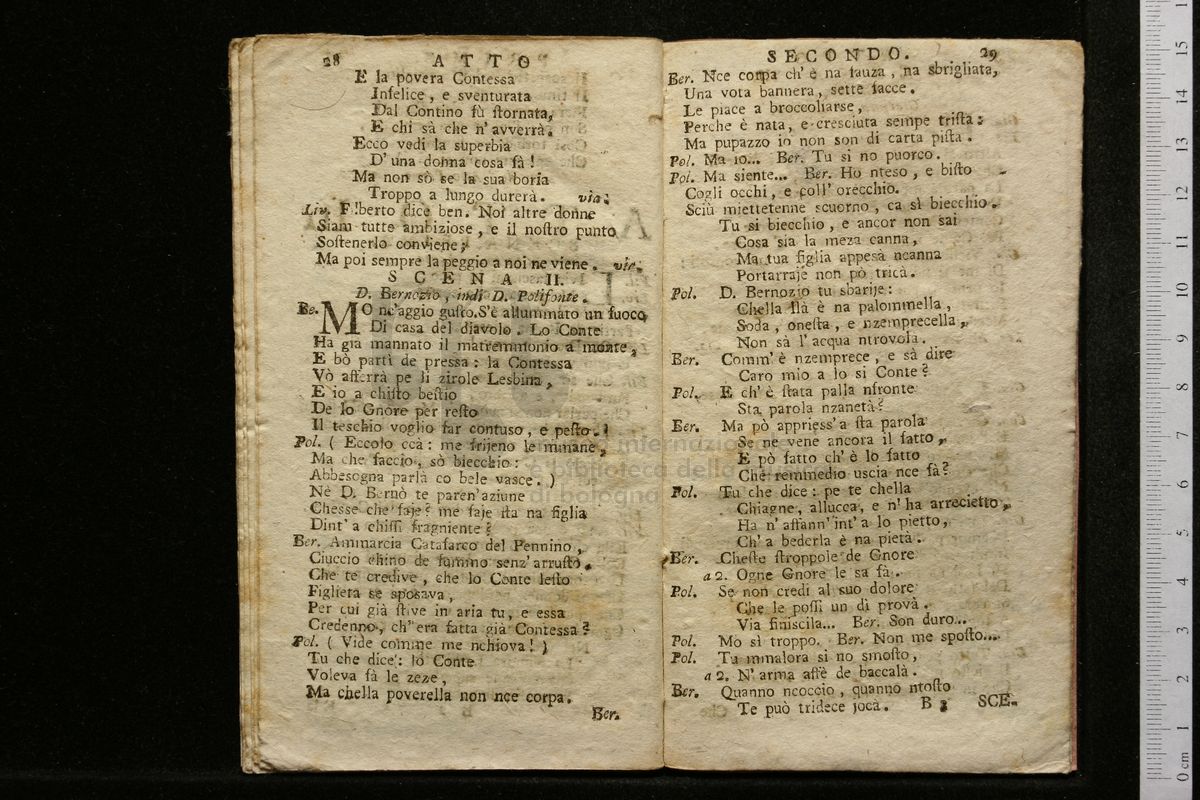 28 ATTO
E la povera Contessa
Infelice, e sventurata
Dal Contino fù ſtornata,
E chi sà che n' avverrà.
Ecco vedi la superbia
D' una donna cosa fà!
Ma non sò se la sua boria
Troppo a lungo durerà. via.
Liv. Filberto dice ben. Noi altre donne
Siam tutte ambiziose, e il noſtro punto
Soſtenerlo conviene;
Ma poi sempre la peggio a noi ne viene. via.
SCENA II.
D. Bernozio, indi D. Polifonte.
Be. MO nc'aggio guſto. S'è allummato un fuoco
Di casa del diavolo. Lo Conte
Ha gia mannato il matremmonio a monte,
E bò partì de pressa: la Contessa
Vò afferrà pe li zirole Lesbina,
E io a chiſto beſtio
De lo Gnore per reſto
Il teschio voglio far contuso, e peſto.
Pol. ( Eccolo ccà: me frijeno le mmane,
Ma che faccio, sò biecchio:
Abbesogna parlà co bele vasce. )
Nè D. Bernò te paren'aziune
Chesse che faje? me faje ſta na figlia
Dint' a chiſſi fragniente?
Ber. Ammarcia Catafarco del Pennino,
Ciuccio chino de fummo senz' arruſto,
Che te credive, che lo Conte leſto
Figlieta se sposava,
Per cui già ſtive in aria tu, e essa
Credenno, ch' era fatta già Contessa?
Pol. ( Vide comme me nchiova! )
Tu che dice: lo Conte
Voleva fà le zeze,
Ma chella poverella non nce corpa.
Ber.
SECONDO. 29
Ber. Nce corpa ch' è na fauza, na sbrigliata,
Una vota bannera, sette facce.
Le piace a broccoliarse,
Perche è nata, e cresciuta sempe triſta:
Ma pupazzo io non son di carta piſta.
Pol. Ma io... Ber. Tu si no puorco.
Pol. Ma siente... Ber. Ho nteso, e biſto
Cogli occhi, e coll' orecchio.
Sciù miettetenne scuorno, ca sì biecchio.
Tu si biecchio, e ancor non sai
Cosa sia la meza canna,
Ma tua figlia appesa ncanna
Portarraje non pò tricà.
Pol. D. Bernozio tu sbarije:
Chella llà è na palommella,
Soda, oneſta, e nzemprecella,
Non sà l' acqua ntrovolà.
Ber. Comm' è nzemprece, e sà dire
Caro mio a lo si Conte?
Pol. E ch' è ſtata palla nfronte
Sta parola nzanetà?
Ber. Ma pò appriess' a ſta parola
Se ne vene ancora il fatto,
E pò fatto ch' è lo fatto
Che remmedio uscia nce fà?
Pol. Tu che dice: pe te chella
Chiagne, allucca, e n' ha arrecietto,
Ha n' affann' int' a lo pietto,
Ch' a bederla è na pietà.
Ber. Cheſte ſtroppole de Gnore
a 2. Ogne Gnore le sa fà.
Pol. Se non credi al suo dolore
Che le poſſi un dì provà.
Via finiscila... Ber. Son duro...
Pol. Mo sì troppo. Ber. Non me spoſto...
Pol. Tu mmalora si no smoſto,
a 2. N' arma aſſè de baccalà.
Ber. Quanno ncoccio, quanno ntoſto
Te può tridece joca.
B 3 SCE-